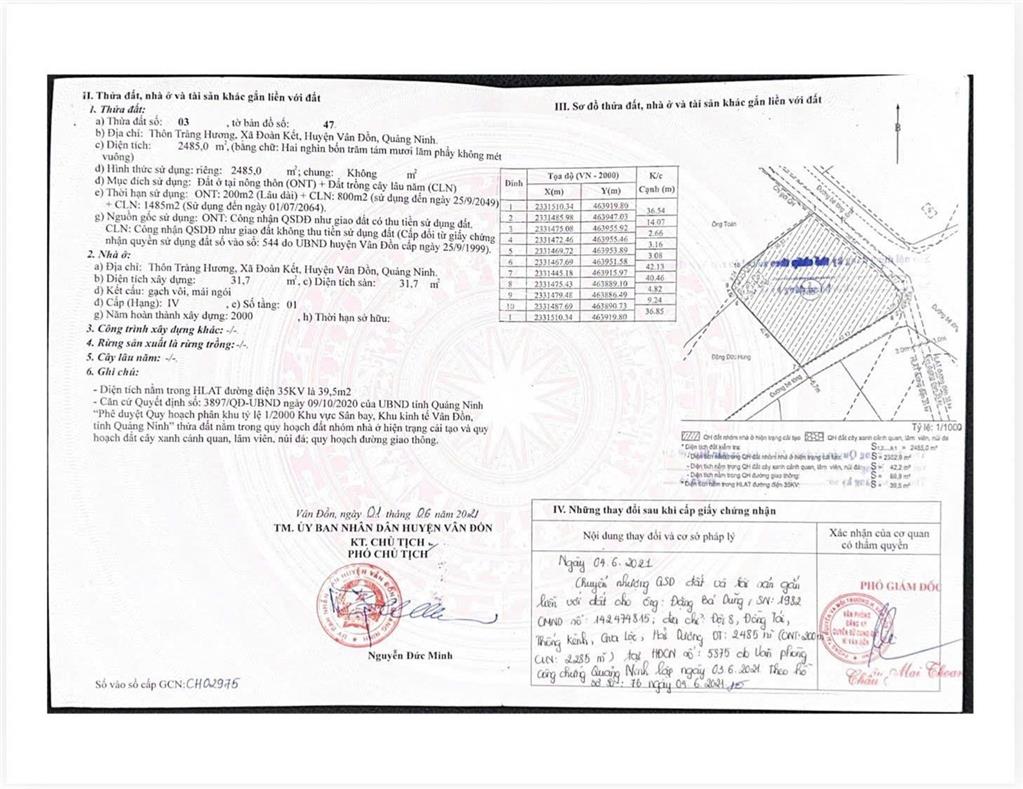 II. Thửa đất, nhà ở và tài sản khác gắn liền với đất
1. Thửa đất:
a) Thửa đất số: 03 , tờ bản đồ số: 47.
b) Địa chỉ: Thôn Tràng Hương, Xã Đoàn Kết, Huyện Vân Đồn, Quảng Ninh.
c) Diện tích: 2485,0 m², (bằng chữ: Hai nghìn bốn trăm tám mươi lăm phẩy không mét
vuông)
d) Hình thức sử dụng: riêng: 2485,0 m²; chung: Không m²
đ) Mục đích sử dụng: Đất ở tại nông thôn (ONT) + Đất trồng cây lâu năm (CLN)
e) Thời hạn sử dụng: ONT: 200m2 (Lâu dài) + CLN: 800m2 (sử dụng đến ngày 25/9/2049)
+ CLN: 1485m2 (Sử dụng đến ngày 01/07/2064).
g) Nguồn gốc sử dụng: ONT: Công nhận QSDĐ như giao đất có thu tiền sử dụng đất.
CLN: Công nhận QSDĐ như giao đất không thu tiền sử dụng đất (Cấp đổi từ giấy chứng
nhận quyền sử dụng đất số vào sổ: 544 do UBND huyện Vân Đồn cấp ngày 25/9/1999).
2. Nhà ở:
a) Địa chỉ: Thôn Tràng Hương, Xã Đoàn Kết, Huyện Vân Đồn, Quảng Ninh.
b) Diện tích xây dựng: 31,7 m², c) Diện tích sàn: 31,7 m²
d) Kết cấu: gạch vôi, mái ngói
đ) Cấp (Hạng): IV , e) Số tầng: 01
g) Năm hoàn thành xây dựng: 2000 , h) Thời hạn sở hữu:
3. Công trình xây dựng khác: -/-
4. Rừng sản xuất là rừng trồng:-/-.
5. Cây lâu năm: -/-.
6. Ghi chú:
- Diện tích nằm trong HLAT đường điện 35KV là 39,5m2
- Căn cứ Quyết định số: 3897/QD-UBND ngày 09/10/2020 của UBND tỉnh Quảng Ninh
"Phê duyệt Quy hoạch phân khu tỷ lệ 1/2000 Khu vực Sân bay, Khu kinh tế Vân Đồn,
tỉnh Quảng Ninh" thửa đất nằm trong quy hoạch đất nhóm nhà ở hiện trạng cải tạo và quy
hoạch đất cây xanh cảnh quan, lâm viên, núi đá; quy hoạch đường giao thông.
Vân Đồn, ngày 01 tháng 06 năm 2021
TM. ỦY BAN NHÂN DÂN HUYỆN VÂN ĐỒN
KT. CHỦ TỊCH
PHÓ CHỦ TỊCH
Nguyễn Đức Minh
Số vào sổ cấp GCN: CH02975
III. Sơ đồ thửa đất, nhà ở và tài sản khác gắn liền với đất
B
Đỉnh Tọa độ (VN - 2000) K/c
X(m) Y(m) Cạnh (m)
1 2331510.34 463919.80
36.54
2 2331485.98 463947.03
14.07
3 2331475.08 463955.92
2.66
4 2331472.46 463955.46
3.16
5 2331469.72 463953.89
3.08
6 2331467.69 463951.58
42.13
7 2331445.18 463915.97
40.46
8 2331475.43 463889.10
4.82
9 2331479.48 463886.49
9.24
10 2331487.69 463890.73
36.85
1 2331510.34 463919.80
Ông Toàn
Đường bê tông
Đặng Đức Hùng
Đường bê tông
Tỷ lệ: 1/1000
QH đất nhóm nhà ở hiện trạng cải tạo QH đất cây xanh cảnh quan, lâm viên, núi đá
* Diện tích đất kiểm tra: = 2485,0 m²
- Diện tích nằm trong QH đất nhóm nhà ở hiện trạng cải tạo: S = 2302,9 m²
- Diện tích nằm trong QH đất cây xanh cảnh quan, lâm viên, núi đá: S = 42,2 m²
- Diện tích nằm trong QH đường giao thông: S =
* Diện tích nằm trong HLAT đường điện 35KV: S = 39,5 m²
IV. Những thay đổi sau khi cấp giấy chứng nhận
Nội dung thay đổi và cơ sở pháp lý
Xác nhận của cơ quan
có thẩm quyền
Ngày 04.6.2021
Chuyển nhượng QSD đất và tài sản gắn
liền với đất cho ông: Đặng Bá Dũng, SN: 1982
CMND số: 142474815; địa chỉ: Đội 8, Đồng Tái,
Thống Kênh, Gia Lộc, Hải Dương DT: 2485 m² (ONT: 200m²
CLN: 2.285 m²) tại HĐCN số: 5375 do Văn phòng
công chứng Quảng Ninh lập ngày 03.6.2021. Theo hồ
sơ số: 76 ngày 04.6.2021
PHÓ GIÁM ĐỐC
VĂN PHÒNG
ĐĂNG KÝ
QUYỀN SỬ DỤNG ĐẤT
H. VÂN ĐỒN
Châu Mai Thoan